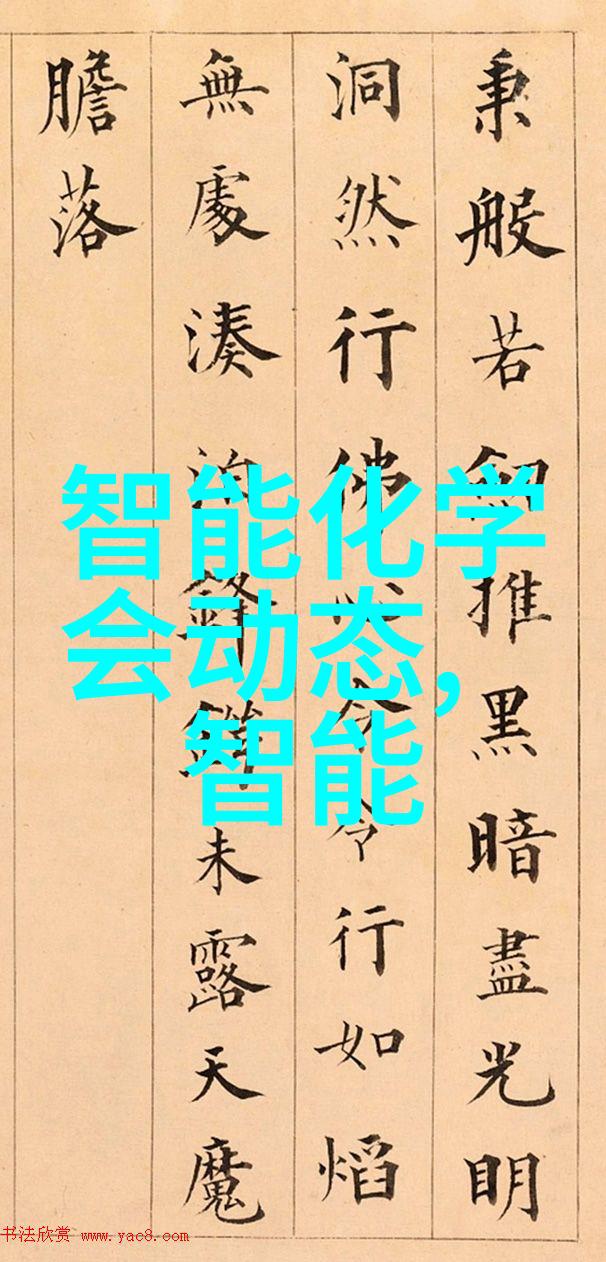 秉般若推黑暗盡光明
洞然行佛心令令行如熖
無處湊泊鋒鋩未露天魔
膽落
智能化学
会动态，
智能
书法欣赏 www.yac8.com